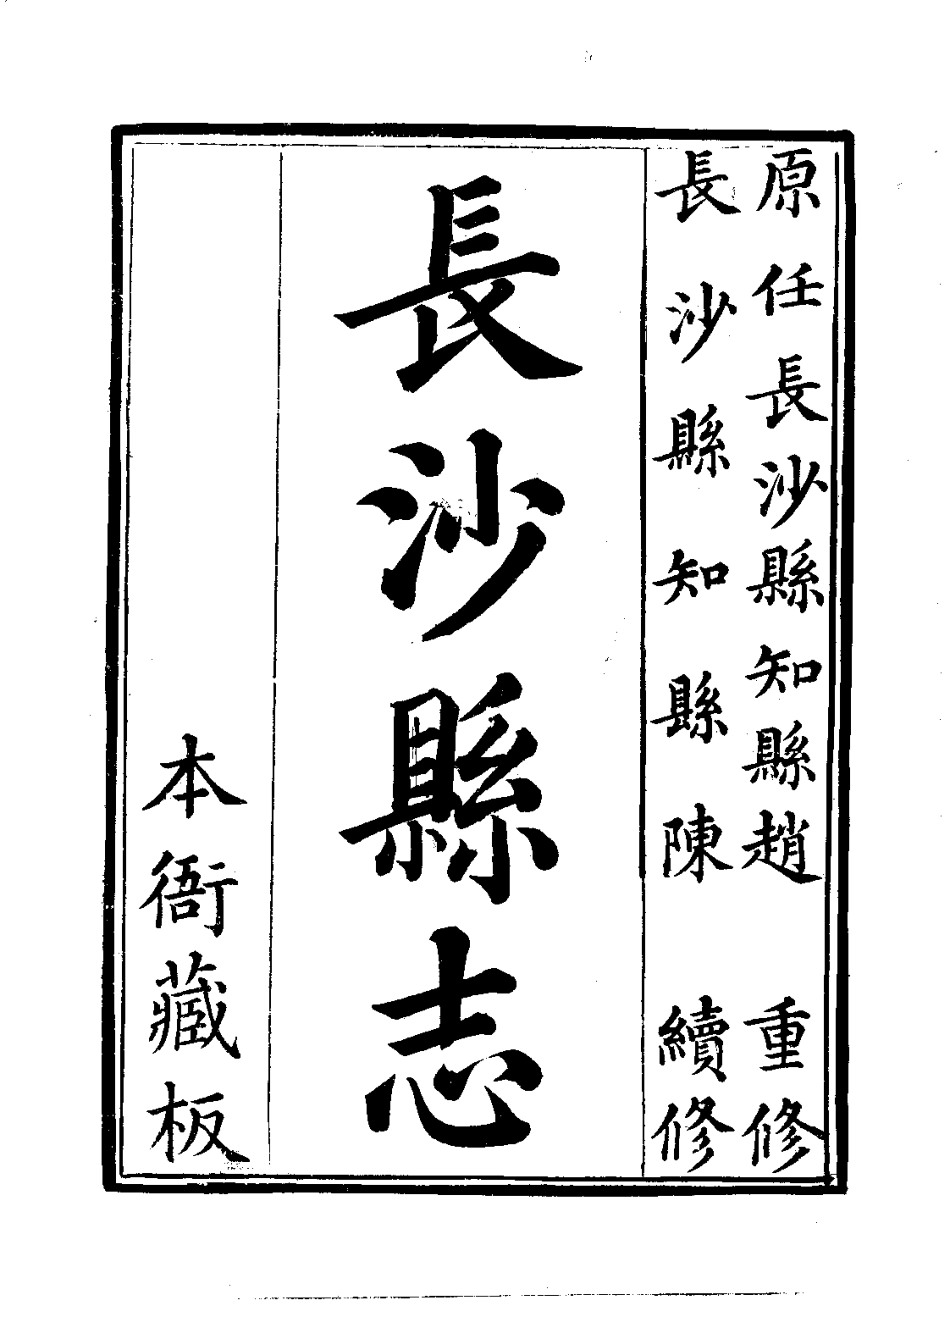 原任長沙縣知縣趙　重修
長沙縣知縣陳　續修
長沙縣志
本衙藏板